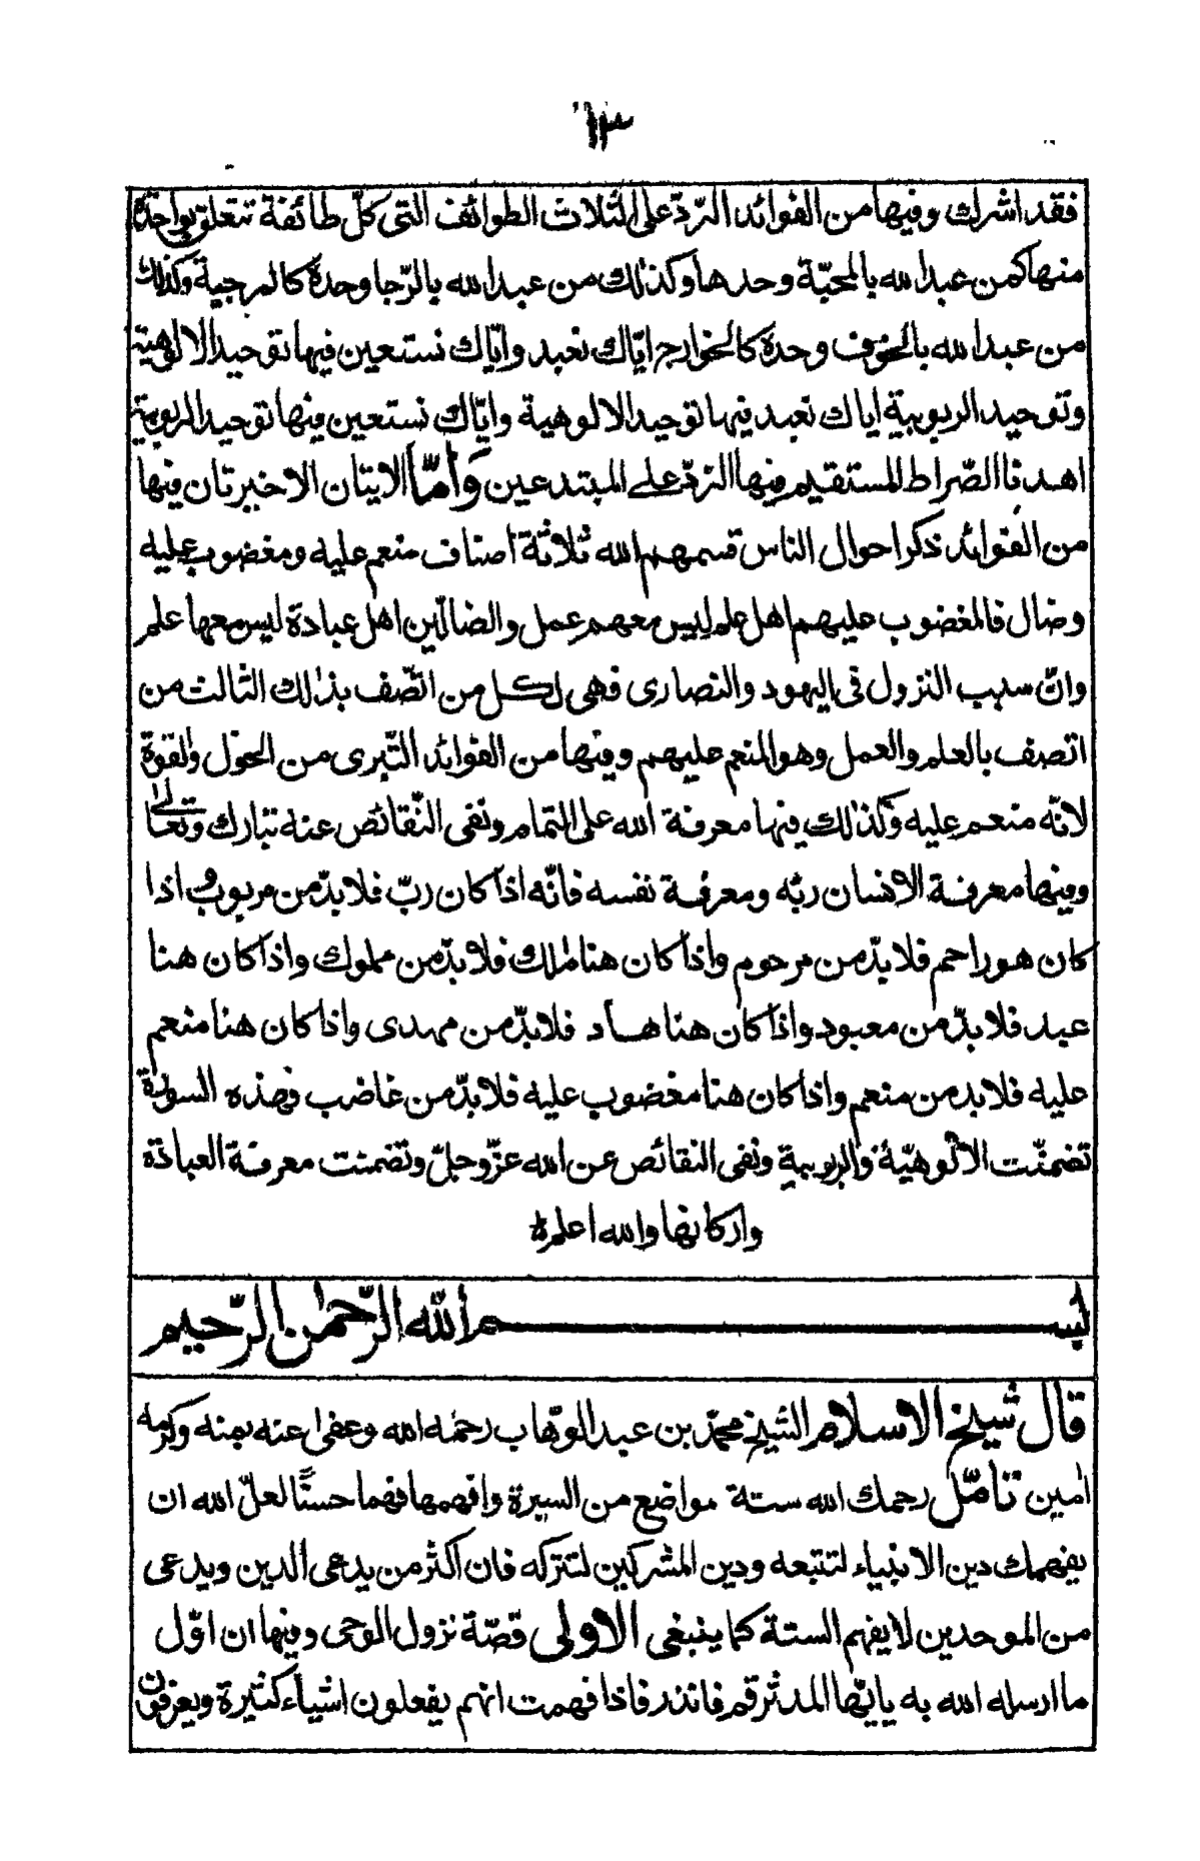 ١٣
فقد اشرك وفيها من الفوائد الرّدّ على الثلاث الطوائف التى كلّ طائفة تتعلق بواحدة
منها كمن عبد الله بالمحبّة وحدها وكذلك من عبد الله بالرّجا وحدة كالمرجية وكذلك
من عبد الله بالخوف وحدة كالخوارج ايّاك نعبد وايّاك نستعين فيها توحيد الالوهية
وتوحيد الربوبية اياك نعبد فيها توحيد الالوهية وايّاك نستعين فيها توحيد الربوبية
اهدنا الصّراط المستقيم فيها الرّدّ على المبتدعين وأمّا الايتان الاخيرتان فيها
من الفوائد ذكر احوال الناس قسمهم الله ثلاثة اصناف منعم عليه ومغضوب عليه
وضال فالمغضوب عليهم اهل علم ليس معهم عمل والضالّين اهل عبادة ليس معها علم
وانّ سبب النزول فى اليهود والنصارى فهى لكل من اتّصف بذلك الثالث من
اتصف بالعلم والعمل وهو المنعم عليهم وفيها من الفوائد التّبرى من الحول والقوّة
لانّه منعم عليه وكذلك فيها معرفة الله على التمام ونفى النّقائص عنه تبارك وتعالى
وفيها معرفة الانسان ربّه ومعرفة نفسه فانّه اذا كان ربّ فلا بدّ من مربوب و اذا
كان هو راحم فلا بدّ من مرحوم واذا كان هنا مالك فلا بدّ من مملوك واذا كان هنا
عبد فلا بدّ من معبود واذا كان هنا هاد فلا بدّ من مهدى واذا كان هنا منعم
عليه فلا بد من منعم واذا كان هنا مغضوب عليه فلا بدّ من غاضب فهذه السورة
تضمنّت الالوهيّة والربوبية ونفى النقائص عن الله عزّ وجلّ وتضمنت معرفة العبادة
واركانها والله اعلم
بسم الله الرّحمن الرّحيم
قال شيخ الاسلام الشيخ محمّد بن عبد الوّهاب رحمه الله وعفى عنه بمنه وكرمه
امين تأمّل رحمك الله ستة مواضع من السيرة وافهمها فهما حسنًا لعلّ الله ان
يفهمك دين الانبياء لتتبعه ودين المشركين لتتركه فان اكثر من يدعى الدين ويدعى
من الموحدين لا يفهم الستة كما ينبغى الاولى قصّة نزول الوحى وفيها ان اوّل
ما ارسله الله به يايّها المدثر قم فانذر فاذا فهمت انهم يفعلون اشياء كثيرة ويعرفون